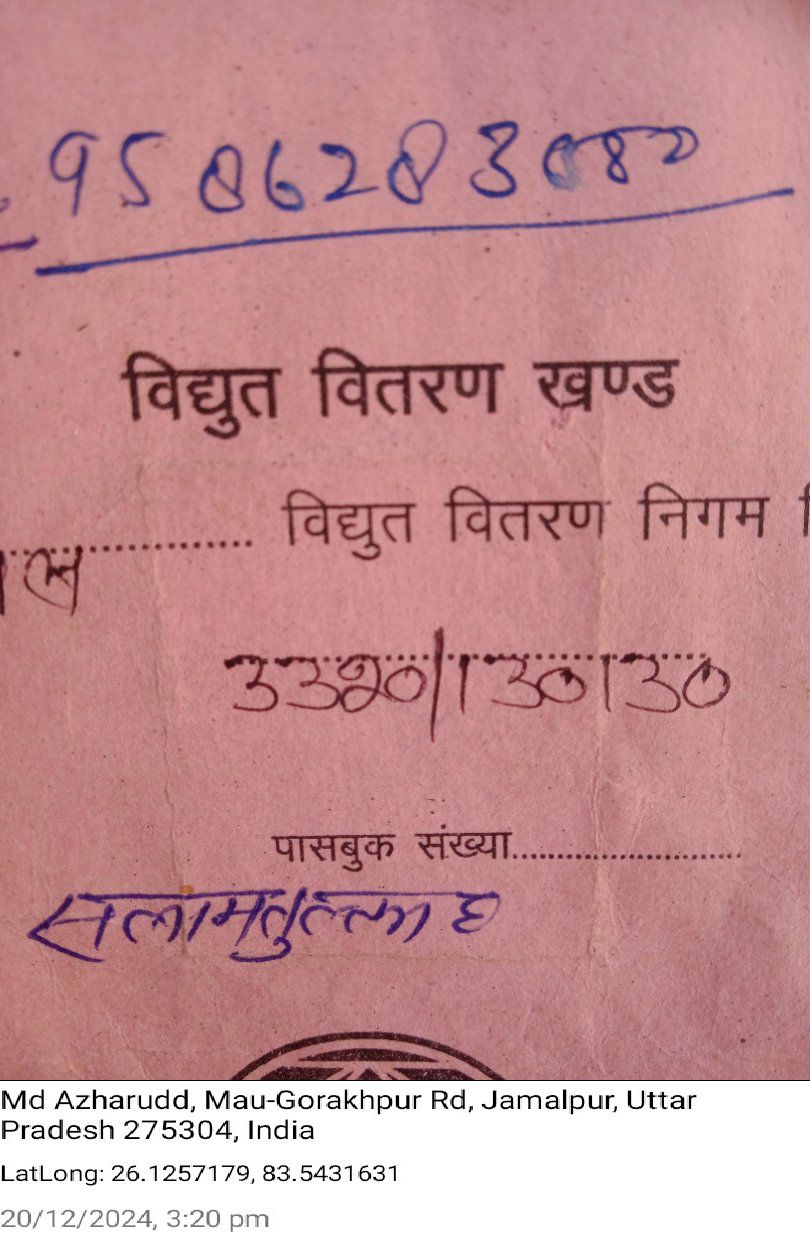 विद्युत वितरण खण्ड
विद्युत वितरण निगम
पासबुक संख्या
सलामतुल्लाह
Md Azharudd, Mau-Gorakhpur Rd, Jamalpur, Uttar
Pradesh 275304, India
LatLong: 26.1257179, 83.5431631
20/12/2024, 3:20 pm